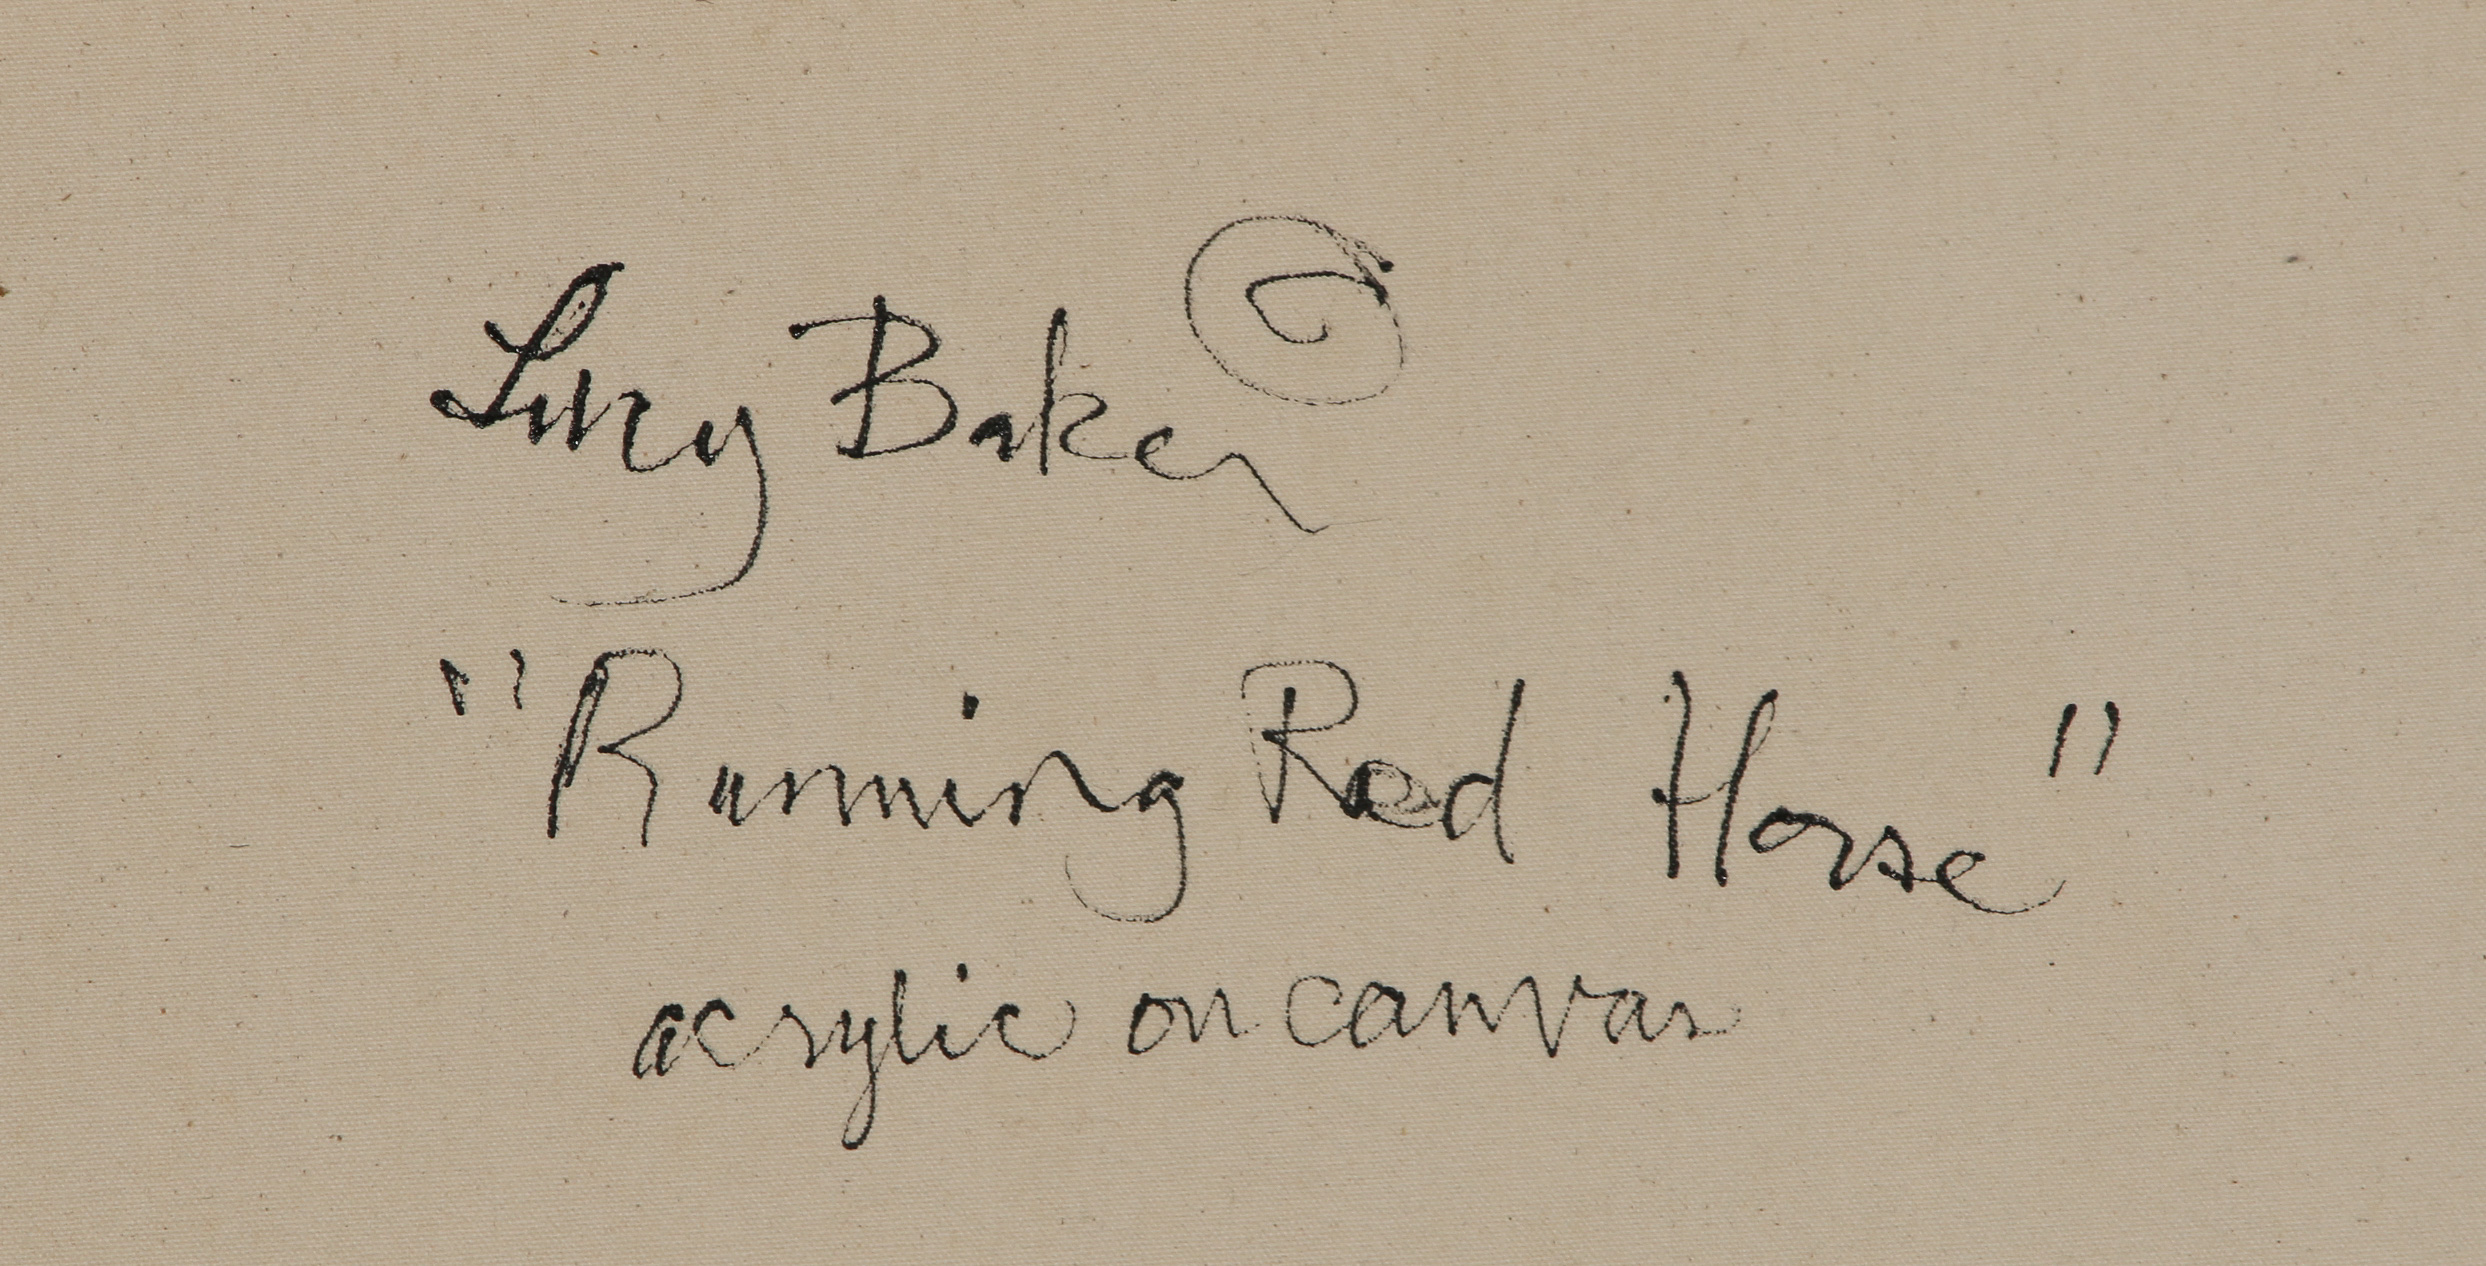 Lucy Baker ©
"Running Red Horse"
acrylic on canvas